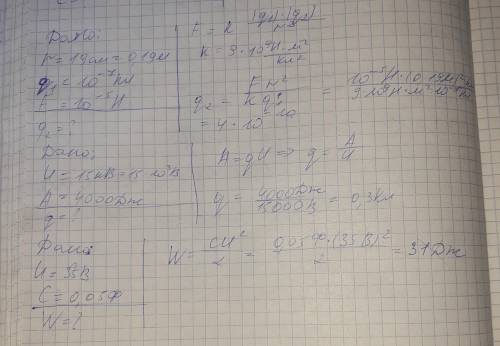 Дано:
r = 19см = 0,19м
q₁ = 10⁻⁷кл
F = 10⁻⁵Н
q₂ = ?
F = k |q₁|·|q₂| / r²
k = 9·10⁹ Н·м² / кл²
q₂ = F r² / k q₁ = 10⁻⁵Н·(0,19м)²
= 4·10⁻¹⁰
Дано:
U = 15кВ = 15·10³В
A = 4000Дж
q = ?
A = qU => q = A / U
q = 4000Дж / 15000В = 0,3Кл
Дано
U = 35В
C = 0,05Ф
W = ?
W = CU² / 2 = 0,05Ф·(35В)² / 2 = 31Дж